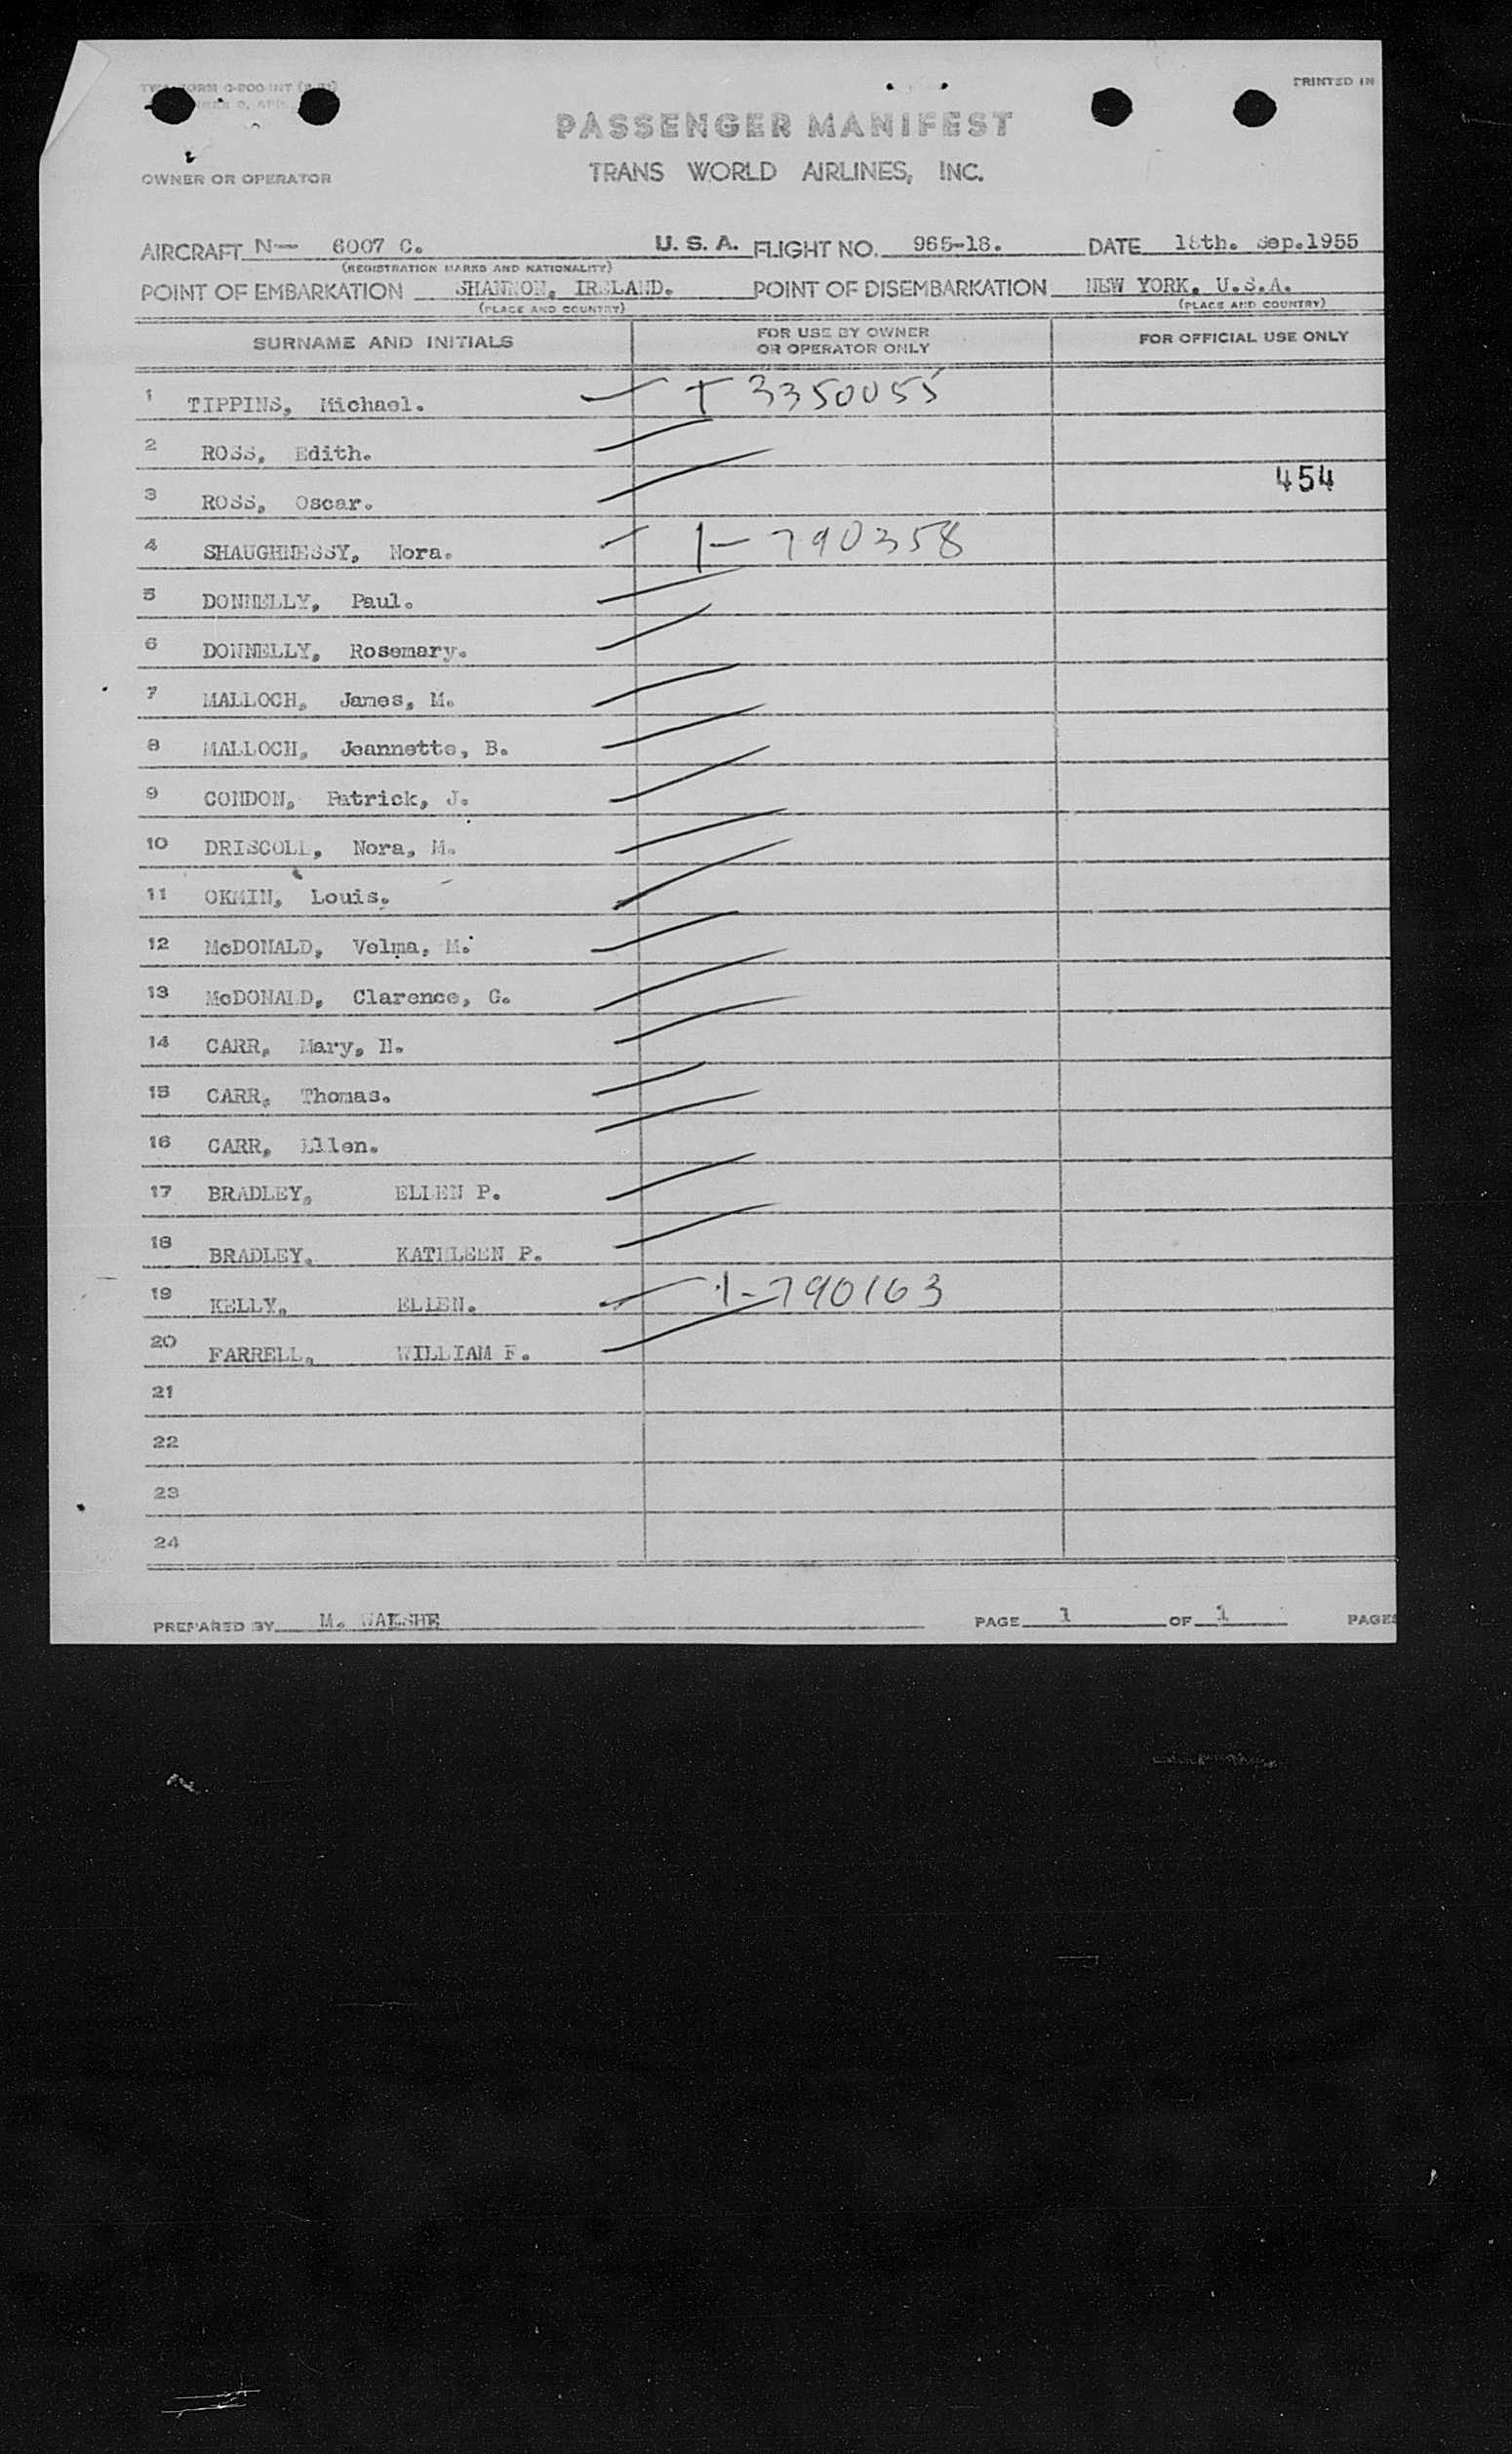 TWA FORM O-200-INT
PRINTED IN
PASSENGER MANIFEST
OWNER OR OPERATOR
TRANS WORLD AIRLINES, INC.
AIRCRAFT N— 6007 C. U. S. A. FLIGHT NO. 965-18. DATE 18th. Sep.1955
(REGISTRATION MARKS AND NATIONALITY)
POINT OF EMBARKATION SHANNON, IRELAND. POINT OF DISEMBARKATION NEW YORK, U.S.A.
(PLACE AND COUNTRY) (PLACE AND COUNTRY)
SURNAME AND INITIALS FOR USE BY OWNER OR OPERATOR ONLY FOR OFFICIAL USE ONLY
1 TIPPINS, Michael. T 3350055
2 ROSS, Edith.
454
3 ROSS, Oscar.
4 SHAUGHNESSY, Nora. 1-790358
5 DONNELLY, Paul.
6 DONNELLY, Rosemary.
7 MALLOCH, James, M.
8 MALLOCH, Jeannette, B.
9 CONDON, Patrick, J.
10 DRISCOLL, Nora, M.
11 OKMIN, Louis.
12 McDONALD, Velma, M.
13 McDONALD, Clarence, G.
14 CARR, Mary, H.
15 CARR, Thomas.
16 CARR, Ellen.
17 BRADLEY, ELLEN P.
18 BRADLEY, KATHLEEN P.
19 KELLY, ELLEN. 1-790163
20 FARRELL, WILLIAM F.
21
22
23
24
PREPARED BY M. WALSHE PAGE 1 OF 1 PAGES